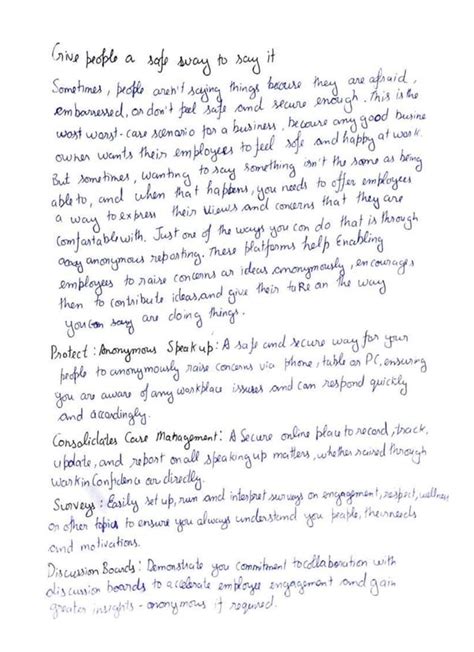 Give people a safe way to say it
Sometimes, people aren't saying things because they are afraid,
embarressed, or don't feel safe and secure enough. This is the
wost worst-case scenario for a business, because any good busine
owner wants their employees to feel safe and happy at work.
But sometimes, wanting to say something isn't the same as being
able to, and when that happens, you needs to offer employees
a way to express their views and concerns that they are
comfortable with. Just one of the ways you can do that is through
anonymous reporting. These platforms help Enabling
employees to raise concerns or ideas anonymously, encourages
then to contribute ideas, and give their on the way
you are doing things.
Protect: Anonymous Speak up: A safe and secure way for your
people to anonymously raise concerns via phone, table or PC, ensuring
you are aware of any workplace issues and can respond quickly
and accordingly.
Consalidates Case Management: A Secure online place to record, track,
update, and report on all speaking up matters, whether raised through
workinConfidence or directly.
Surveys: Easily set up, run and interpret surveys on engagement, respect, wellness
or other topics to ensure you always understand you people, their needs
and motivations.
Discussion Boards: Demonstrate you commitment to collaboration with
discussion boards to accelerate employee engagement and gain
greater insights - anonymous if required.